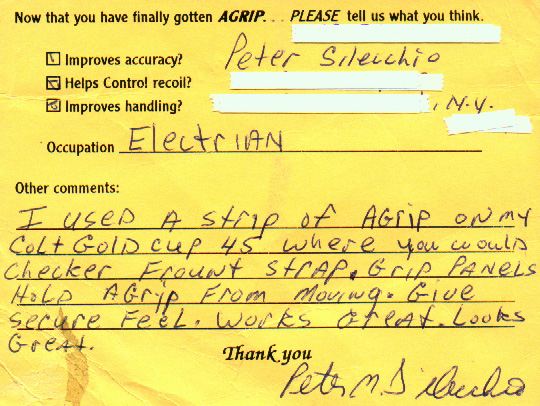 Now that you have finally gotten AGRIP. . . PLEASE tell us what you think.
Improves accuracy? Peter Silecchio
Helps Control recoil?
Improves handling? , N.Y.
Occupation ElectriAN
Other comments:
I used A strip of AGrip on my
Colt Gold cup 45 where you would
checker Frount strap. Grip PANELS
Hold AGrip From moving. Give
secure Feel. Works Great. Looks
Great.
Thank you
Peter M. Silecchio